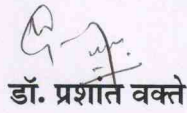 डॉ. प्रशांत वक्ते